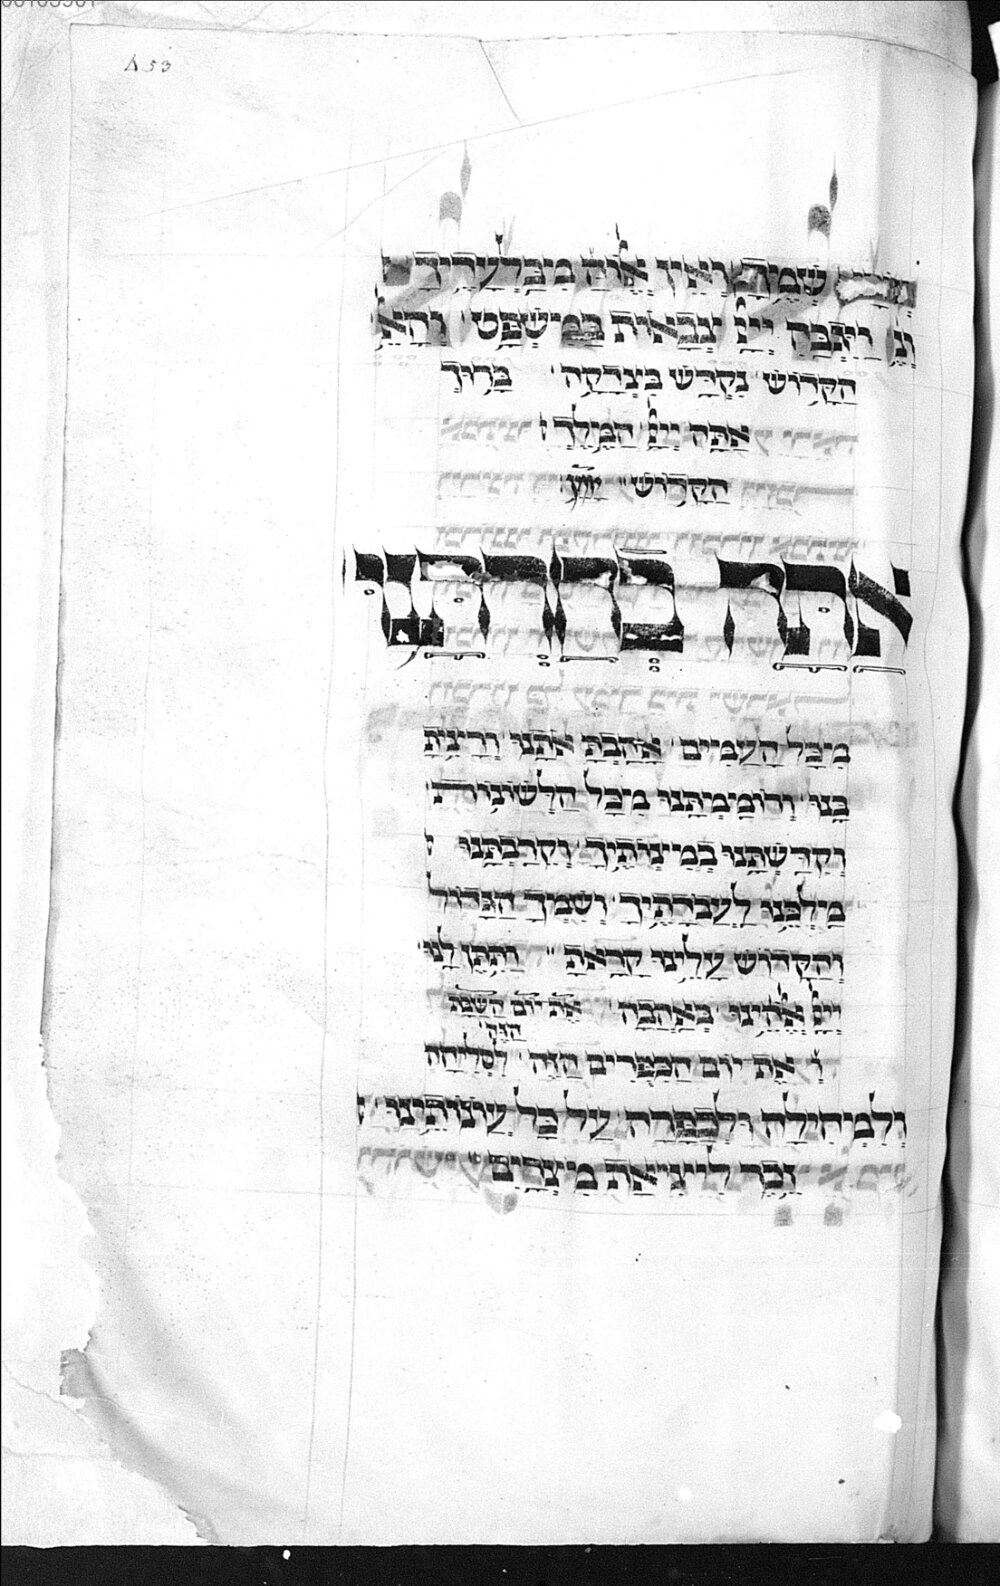 453
וְנוֹרָא שְׁמֶךָ וְאֵין אֱלוֹהַּ מִבַּלְעָדֶיךָ
וְנֶ' וַיִּגְבַּהּ יְיָ צְבָאוֹת בַּמִּשְׁפָּט וְהָאֵ'
הַקָּדוֹשׁ נִקְדַּשׁ בִּצְדָקָה בָּרוּךְ
אַתָּה יְיָ הַמֶּלֶךְ
הַקָּדוֹשׁ
אַתָּה בְחַרְתָּנוּ
מִכָּל הָעַמִּים אָהַבְתָּ אֹתָנוּ וְרָצִיתָ
בָּנוּ וְרוֹמַמְתָּנוּ מִכָּל הַלְּשׁוֹנוֹת
וְקִדַּשְׁתָּנוּ בְּמִצְוֹתֶיךָ וְקֵרַבְתָּנוּ
מַלְכֵּנוּ לַעֲבֹדָתֶיךָ וְשִׁמְךָ הַגָּדוֹל
וְהַקָּדוֹשׁ עָלֵינוּ קָרָאתָ וַתִּתֶּן לָנוּ
יְיָ אֱלֹהֵינוּ בְּאַהֲבָה אֶת יוֹם הַשַּׁבָּת
הַזֶּה
וְ אֶת יוֹם הַכִּפֻּרִים הַזֶּה לִסְלִיחָה
וְלִמְחִילָה וּלְכַפָּרָה עַל כָּל עֲוֹנוֹתֵינוּ
זֵכֶר לִיצִיאַת מִצְרָיִם